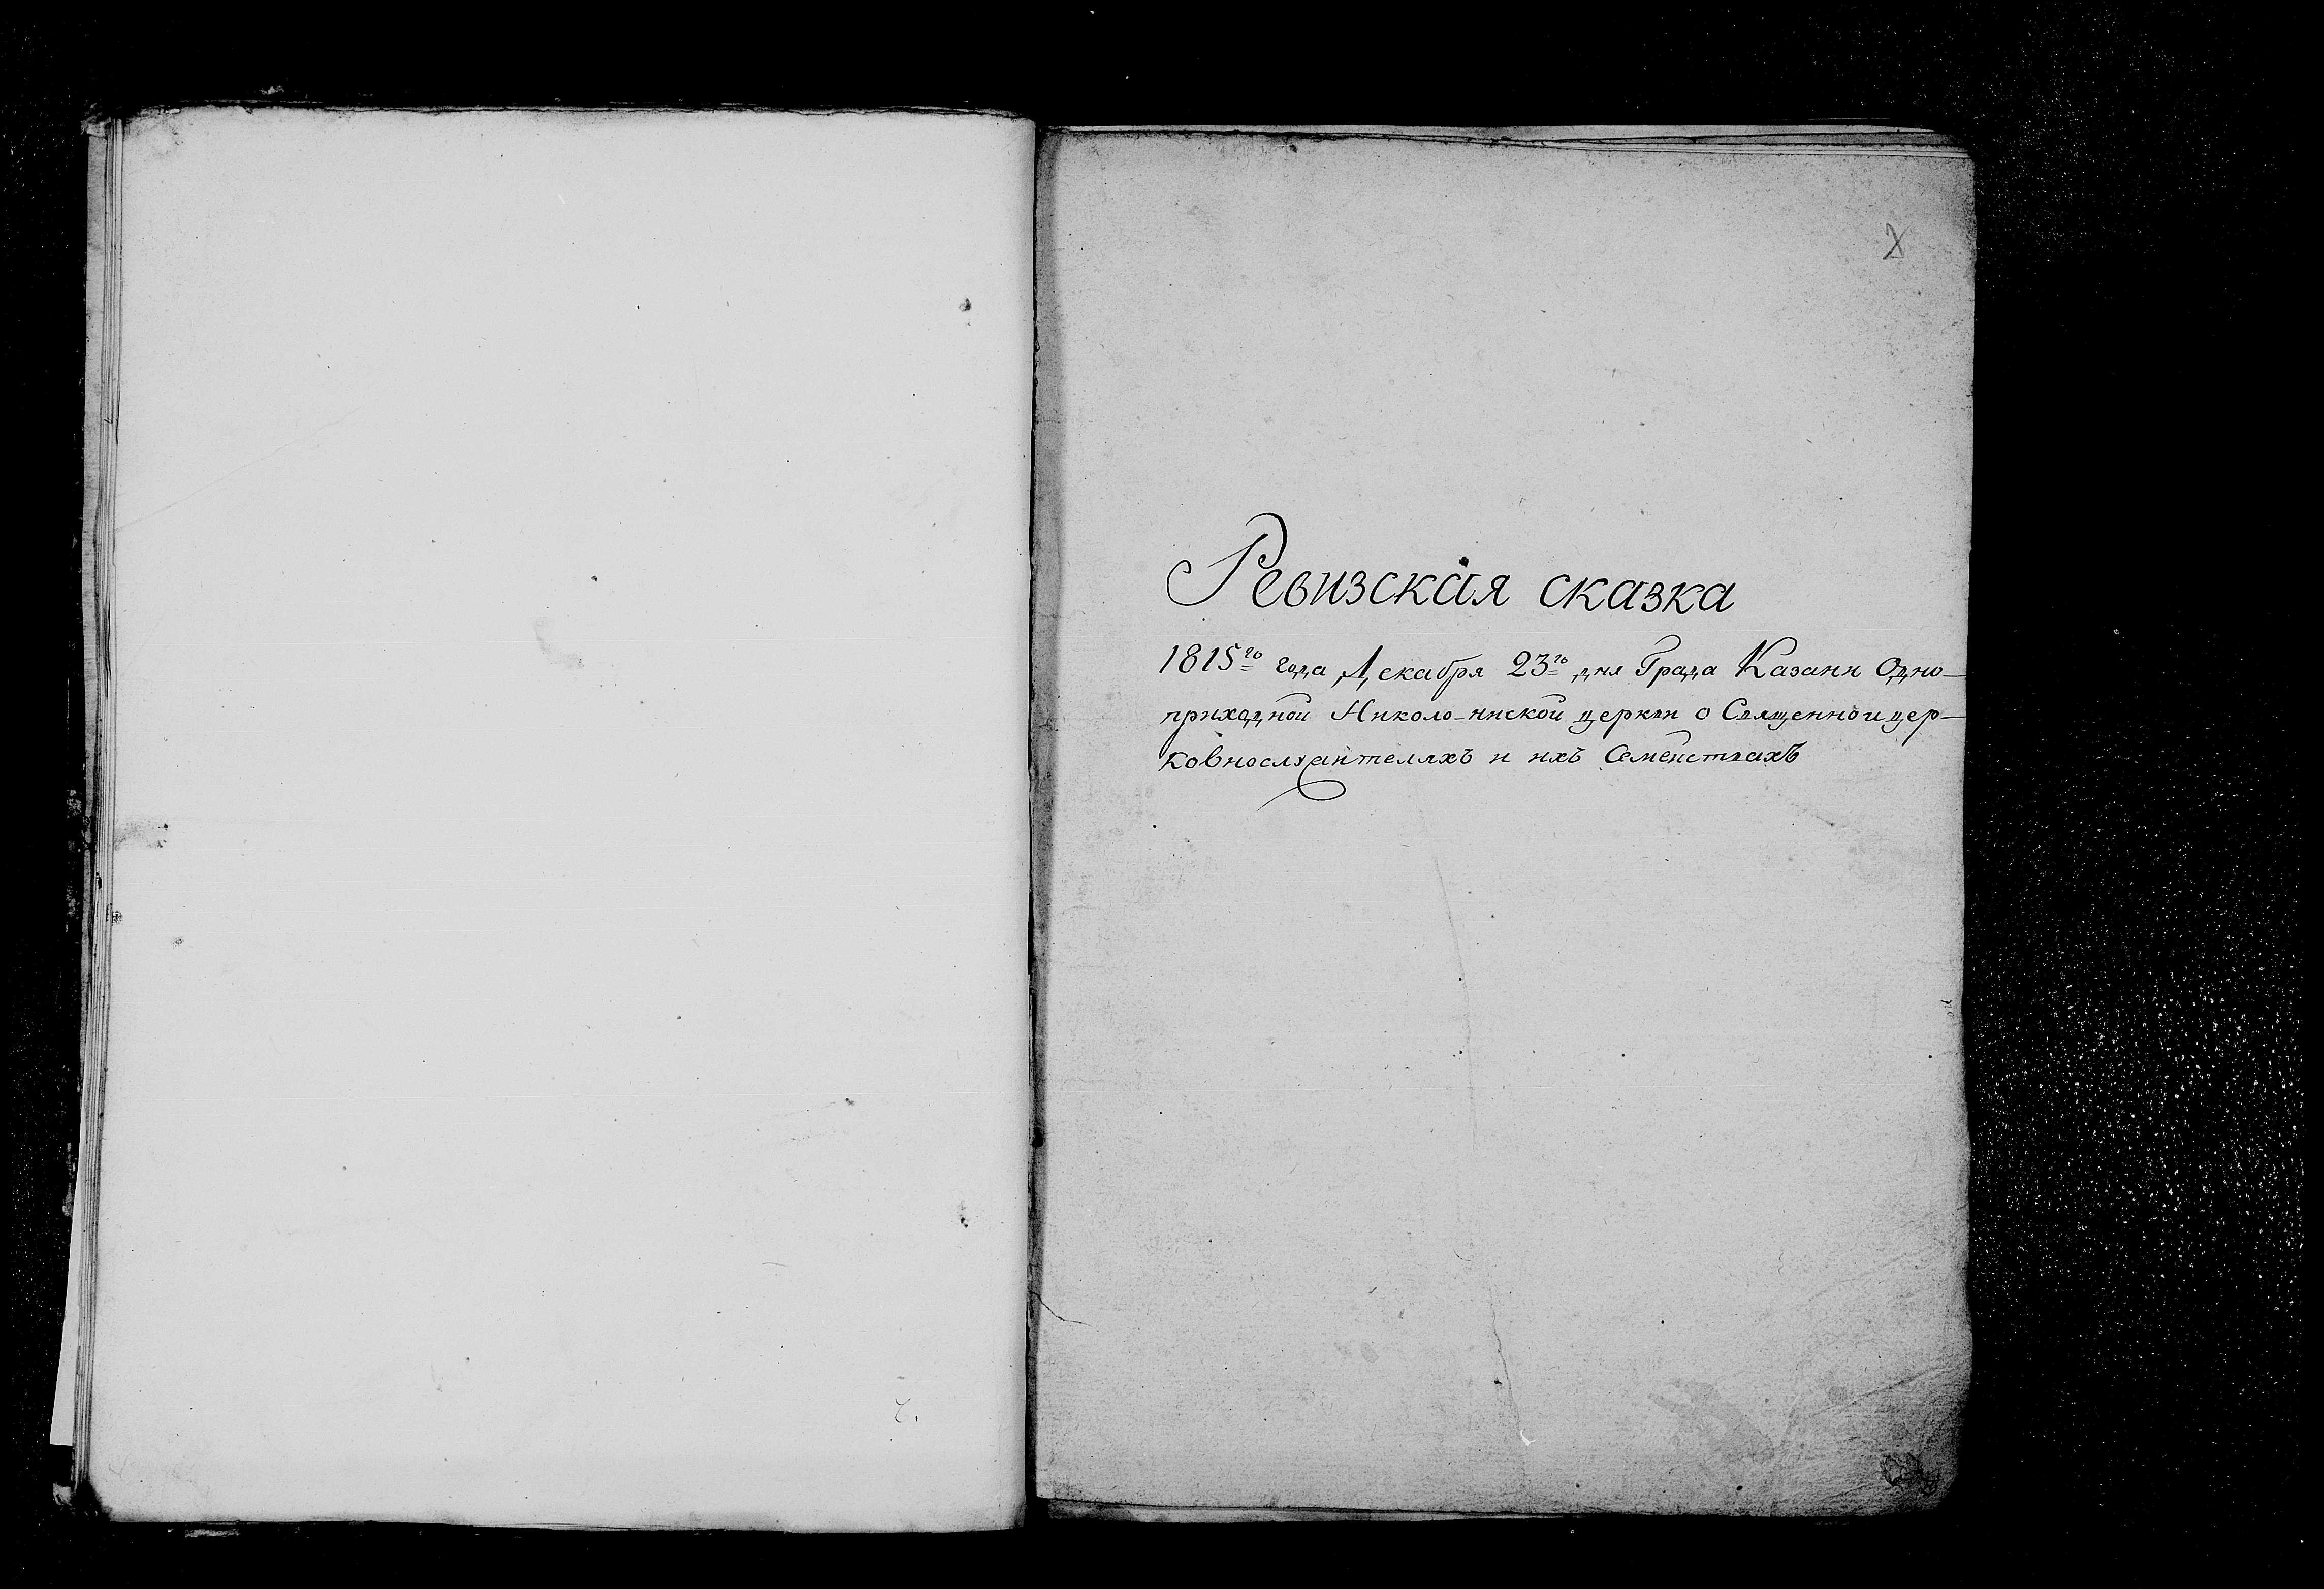 Ревизская сказка
1815го года Декабря 23го дня Града Казани Одно-
приходной Николо-ниской церкви о Священно и цер-
ковнослужителяхъ и ихъ Семействахъ